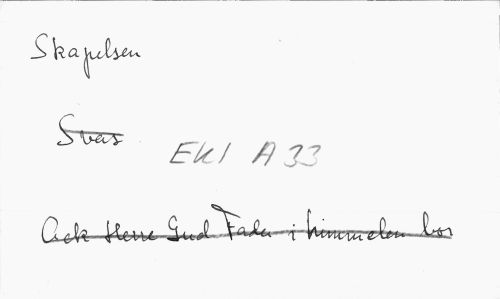 Skapelsen
Svas
EKI A 33
Ack Herre Gud Fader i himmelen bor